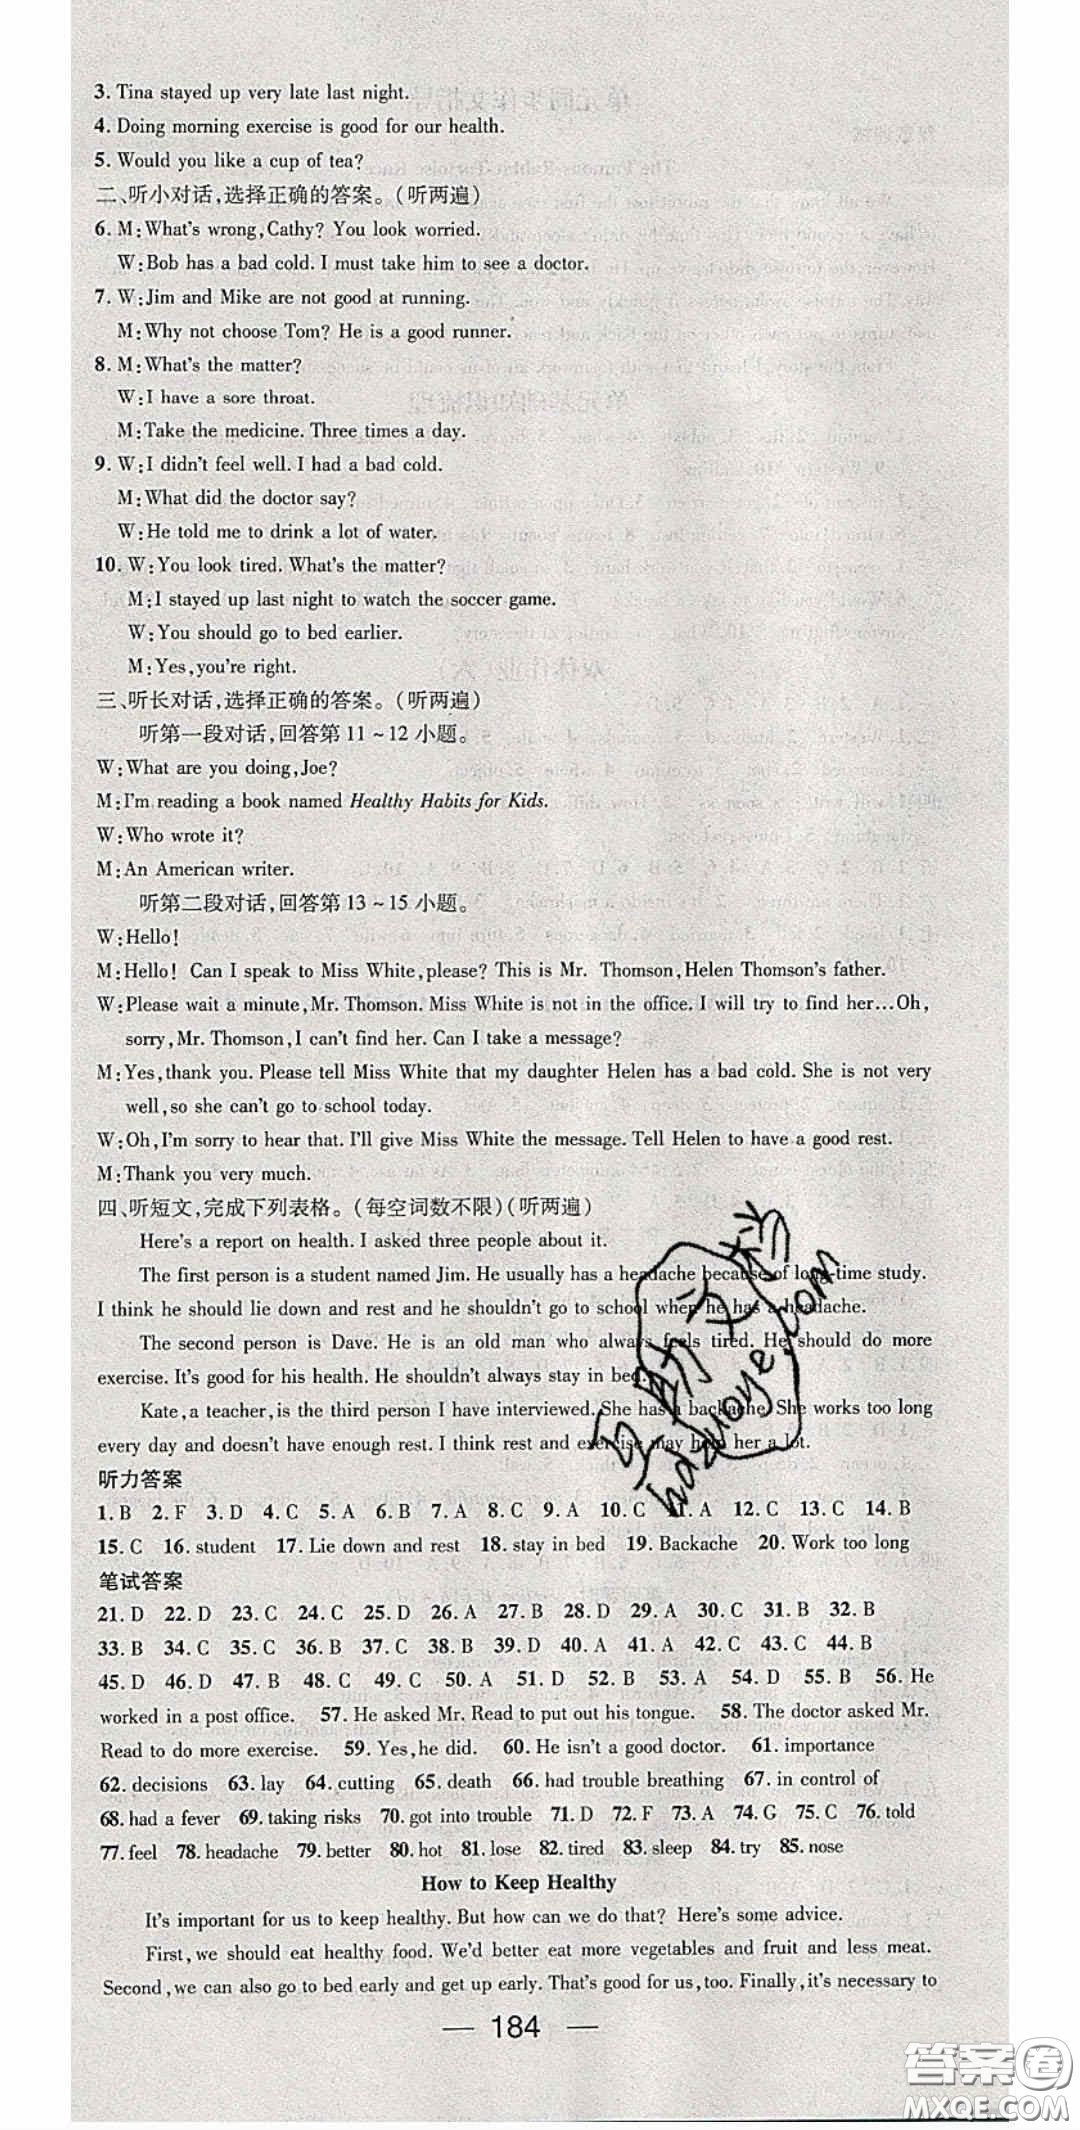 3. Tina stayed up very late last night.
4. Doing morning exercise is good for our health.
5. Would you like a cup of tea?
二、听小对话,选择正确的答案。(听两遍)
6. M:What's wrong,Cathy? You look worried.
W:Bob has a bad cold. I must take him to see a doctor.
7. W:Jim and Mike are not good at running.
M:Why not choose Tom? He is a good runner.
8. M:What's the matter?
W:I have a sore throat.
M:Take the medicine. Three times a day.
9. W:I didn't feel well. I had a bad cold.
M:What did the doctor say?
W:He told me to drink a lot of water.
10. W:You look tired. What's the matter?
M:I stayed up last night to watch the soccer game.
W:You should go to bed earlier.
M:Yes,you're right.
三、听长对话,选择正确的答案。(听两遍)
听第一段对话,回答第 11~12 小题。
W:What are you doing,Joe?
M:I'm reading a book named Healthy Habits for Kids.
W:Who wrote it?
M:An American writer.
听第二段对话,回答第 13~15 小题。
W:Hello!
M:Hello! Can I speak to Miss White,please? This is Mr. Thomson,Helen Thomson's father.
W:Please wait a minute,Mr. Thomson. Miss White is not in the office. I will try to find her…Oh,
sorry,Mr. Thomson,I can't find her. Can I take a message?
M:Yes,thank you. Please tell Miss White that my daughter Helen has a bad cold. She is not very
well,so she can't go to school today.
W:Oh,I'm sorry to hear that. I'll give Miss White the message. Tell Helen to have a good rest.
M:Thank you very much.
四、听短文,完成下列表格。(每空词数不限)(听两遍)
Here's a report on health. I asked three people about it.
The first person is a student named Jim. He usually has a headache because of long-time study.
I think he should lie down and rest and he shouldn't go to school when he has a headache.
The second person is Dave. He is an old man who always feels tired. He should do more
exercise. It's good for his health. He shouldn't always stay in bed.
Kate,a teacher,is the third person I have interviewed. She has a backache. She works too long
every day and doesn't have enough rest. I think rest and exercise may help her a lot.
听力答案
1. B 2. F 3. D 4. C 5. A 6. B 7. A 8. C 9. A 10. C 11. A 12. C 13. C 14. B
15. C 16. student 17. Lie down and rest 18. stay in bed 19. Backache 20. Work too long
笔试答案
21. D 22. D 23. C 24. C 25. D 26. A 27. B 28. D 29. A 30. C 31. B 32. B
33. B 34. C 35. C 36. B 37. C 38. B 39. D 40. A 41. A 42. C 43. C 44. B
45. D 46. D 47. B 48. C 49. C 50. A 51. D 52. B 53. A 54. D 55. B 56. He
worked in a post office. 57. He asked Mr. Read to put out his tongue. 58. The doctor asked Mr.
Read to do more exercise. 59. Yes,he did. 60. He isn't a good doctor. 61. importance
62. decisions 63. lay 64. cutting 65. death 66. had trouble breathing 67. in control of
68. had a fever 69. taking risks 70. got into trouble 71. D 72. F 73. A 74. G 75. C 76. told
77. feel 78. headache 79. better 80. hot 81. lose 82. tired 83. sleep 84. try 85. nose
How to Keep Healthy
It's important for us to keep healthy. But how can we do that? Here's some advice.
First,we should eat healthy food. We'd better eat more vegetables and fruit and less meat.
Second,we can also go to bed early and get up early. That's good for us,too. Finally,it's necessary to
— 184 —
答案圈
MXQE.COM